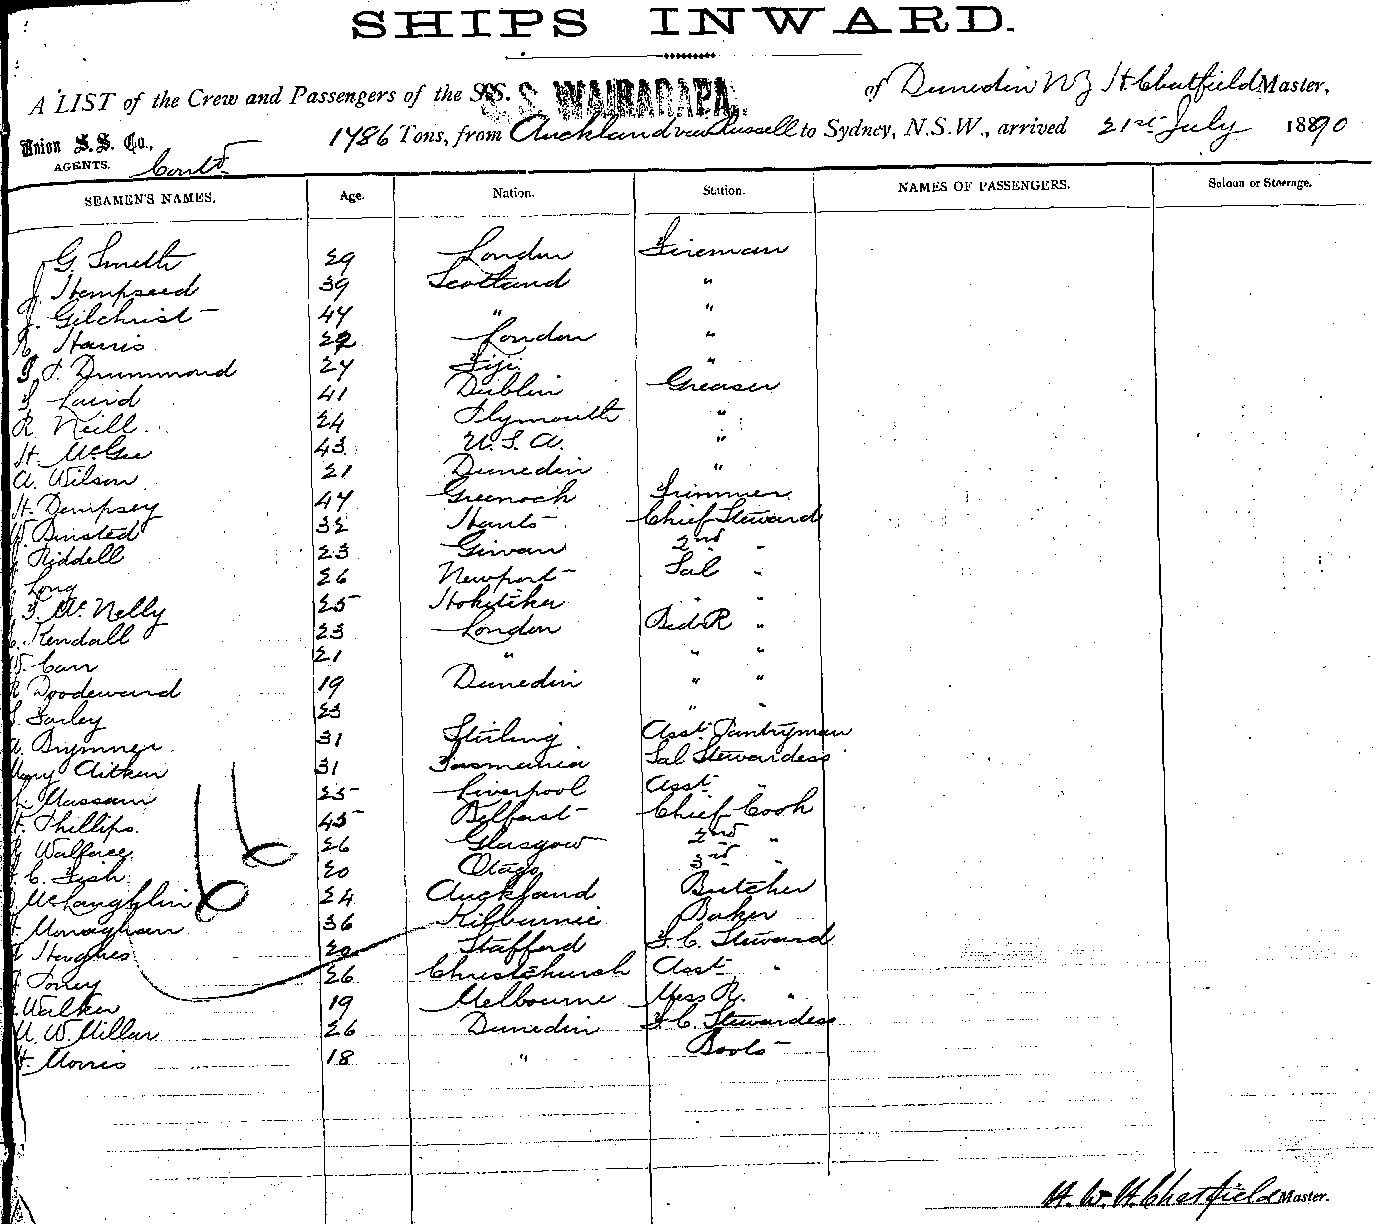 SHIPS INWARD.
A LIST of the Crew and Passengers of the S.S. S. S. WAIRARAPA. of Dunedin NZ H. Chatfield Master,
Union S. S. Co., AGENTS. 1786 Tons, from Auckland via Russell to Sydney, N.S.W., arrived 21st July 1890
Contd
SEAMEN'S NAMES. Age. Nation. Station. NAMES OF PASSENGERS. Saloon or Steerage.
G. Smith 29 London Fireman
J. Hempseed 39 Scotland "
J. Gilchrist 44 " "
Harris 22 London "
J. Drummond 24 Fiji "
Laird 41 Dublin Greaser
R. Neill 24 Plymouth "
H. McGee 43 U.S.A. "
A. Wilson 21 Dunedin "
H. Dempsey 47 Greenock Trimmer
W. Binsted 32 Hants Chief Steward
Riddell 23 Girvan 2nd "
Long 26 Newport Sal "
McNelly 25 Hokitika " "
Kendall 23 London Bed R "
W. Carr 21 " " "
R Woodeward 19 Dunedin " "
Farley 23 " "
A. Brymner 31 Stirling Asst. Pantryman
Mary Aitken 31 Tasmania Sal Stewardess
Massam 25 Liverpool Asst "
H. Phillips. 45 Belfast Chief Cook
Wallace 26 Glasgow 2nd "
C. Fish 20 Otago 3rd "
McLaughlin 24 Auckland Butcher
Monaghan 36 Kilburnie Baker
Hughes 20 Stafford F.C. Steward
Torey 26 Christchurch Asst "
Walker 19 Melbourne Mess R. "
M. W. Millar 26 Dunedin F.C. Stewardess
H. Morris 18 " Boots
H. W. H. Chatfield Master.